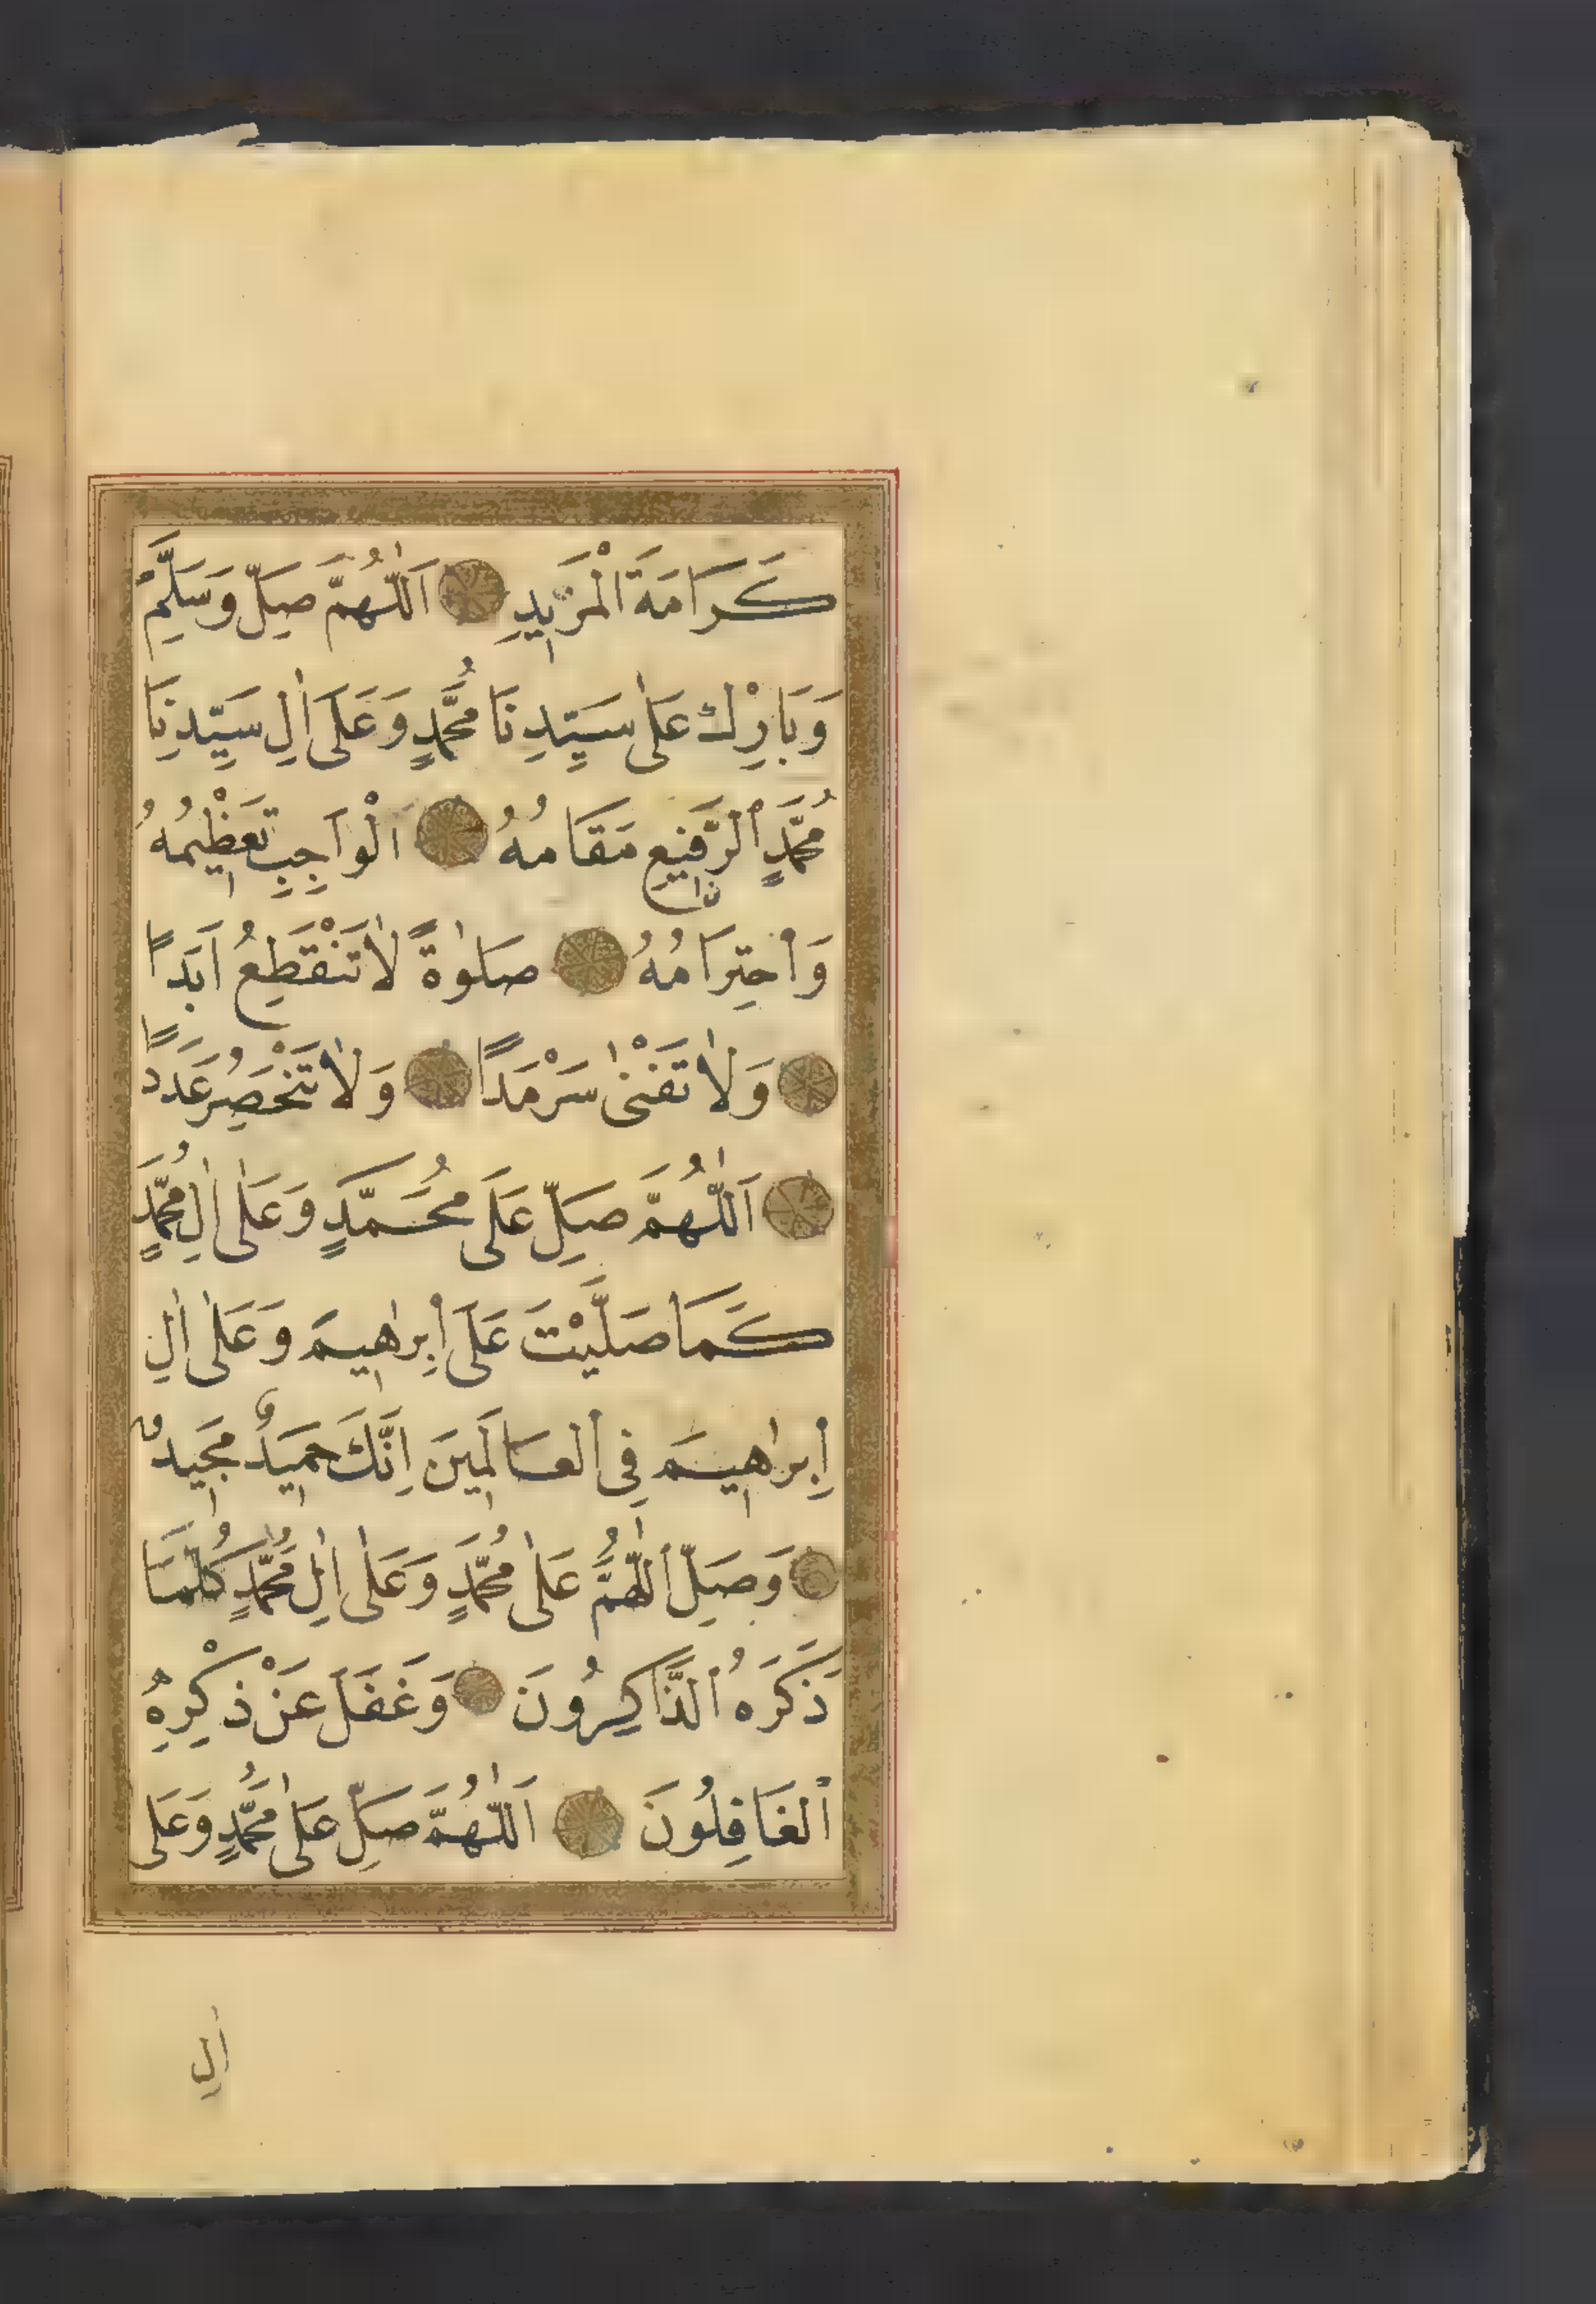 كَرَامَةَ الْمَزِيدِ اَللّٰهُمَّ صَلِّ وَسَلِّمْ
وَبَارِكْ عَلٰى سَيِّدِنَا مُحَمَّدٍ وَعَلَى اٰلِ سَيِّدِنَا
مُحَمَّدٍ الرَّفِيعِ مَقَامُهُ اَلْوَاجِبِ تَعْظِيمُهُ
وَاحْتِرَامُهُ صَلٰوةً لَا تَنْقَطِعُ اَبَدًا
وَلَا تَفْنٰى سَرْمَدًا وَلَا تَنْحَصِرُ عَدَدًا
اَللّٰهُمَّ صَلِّ عَلَى مُحَمَّدٍ وَعَلٰى اٰلِ مُحَمَّدٍ
كَمَا صَلَّيْتَ عَلَى اِبْرٰهِيمَ وَعَلٰى اٰلِ
اِبْرٰهِيمَ فِى الْعَالَمِينَ اِنَّكَ حَمِيدٌ مَجِيدٌ
وَصَلِّ اللّٰهُمَّ عَلٰى مُحَمَّدٍ وَعَلٰى اٰلِ مُحَمَّدٍ كُلَّمَا
ذَكَرَهُ الذَّاكِرُونَ وَغَفَلَ عَنْ ذِكْرِهِ
الْغَافِلُونَ اَللّٰهُمَّ صَلِّ عَلٰى مُحَمَّدٍ وَعَلَى
اٰلِ